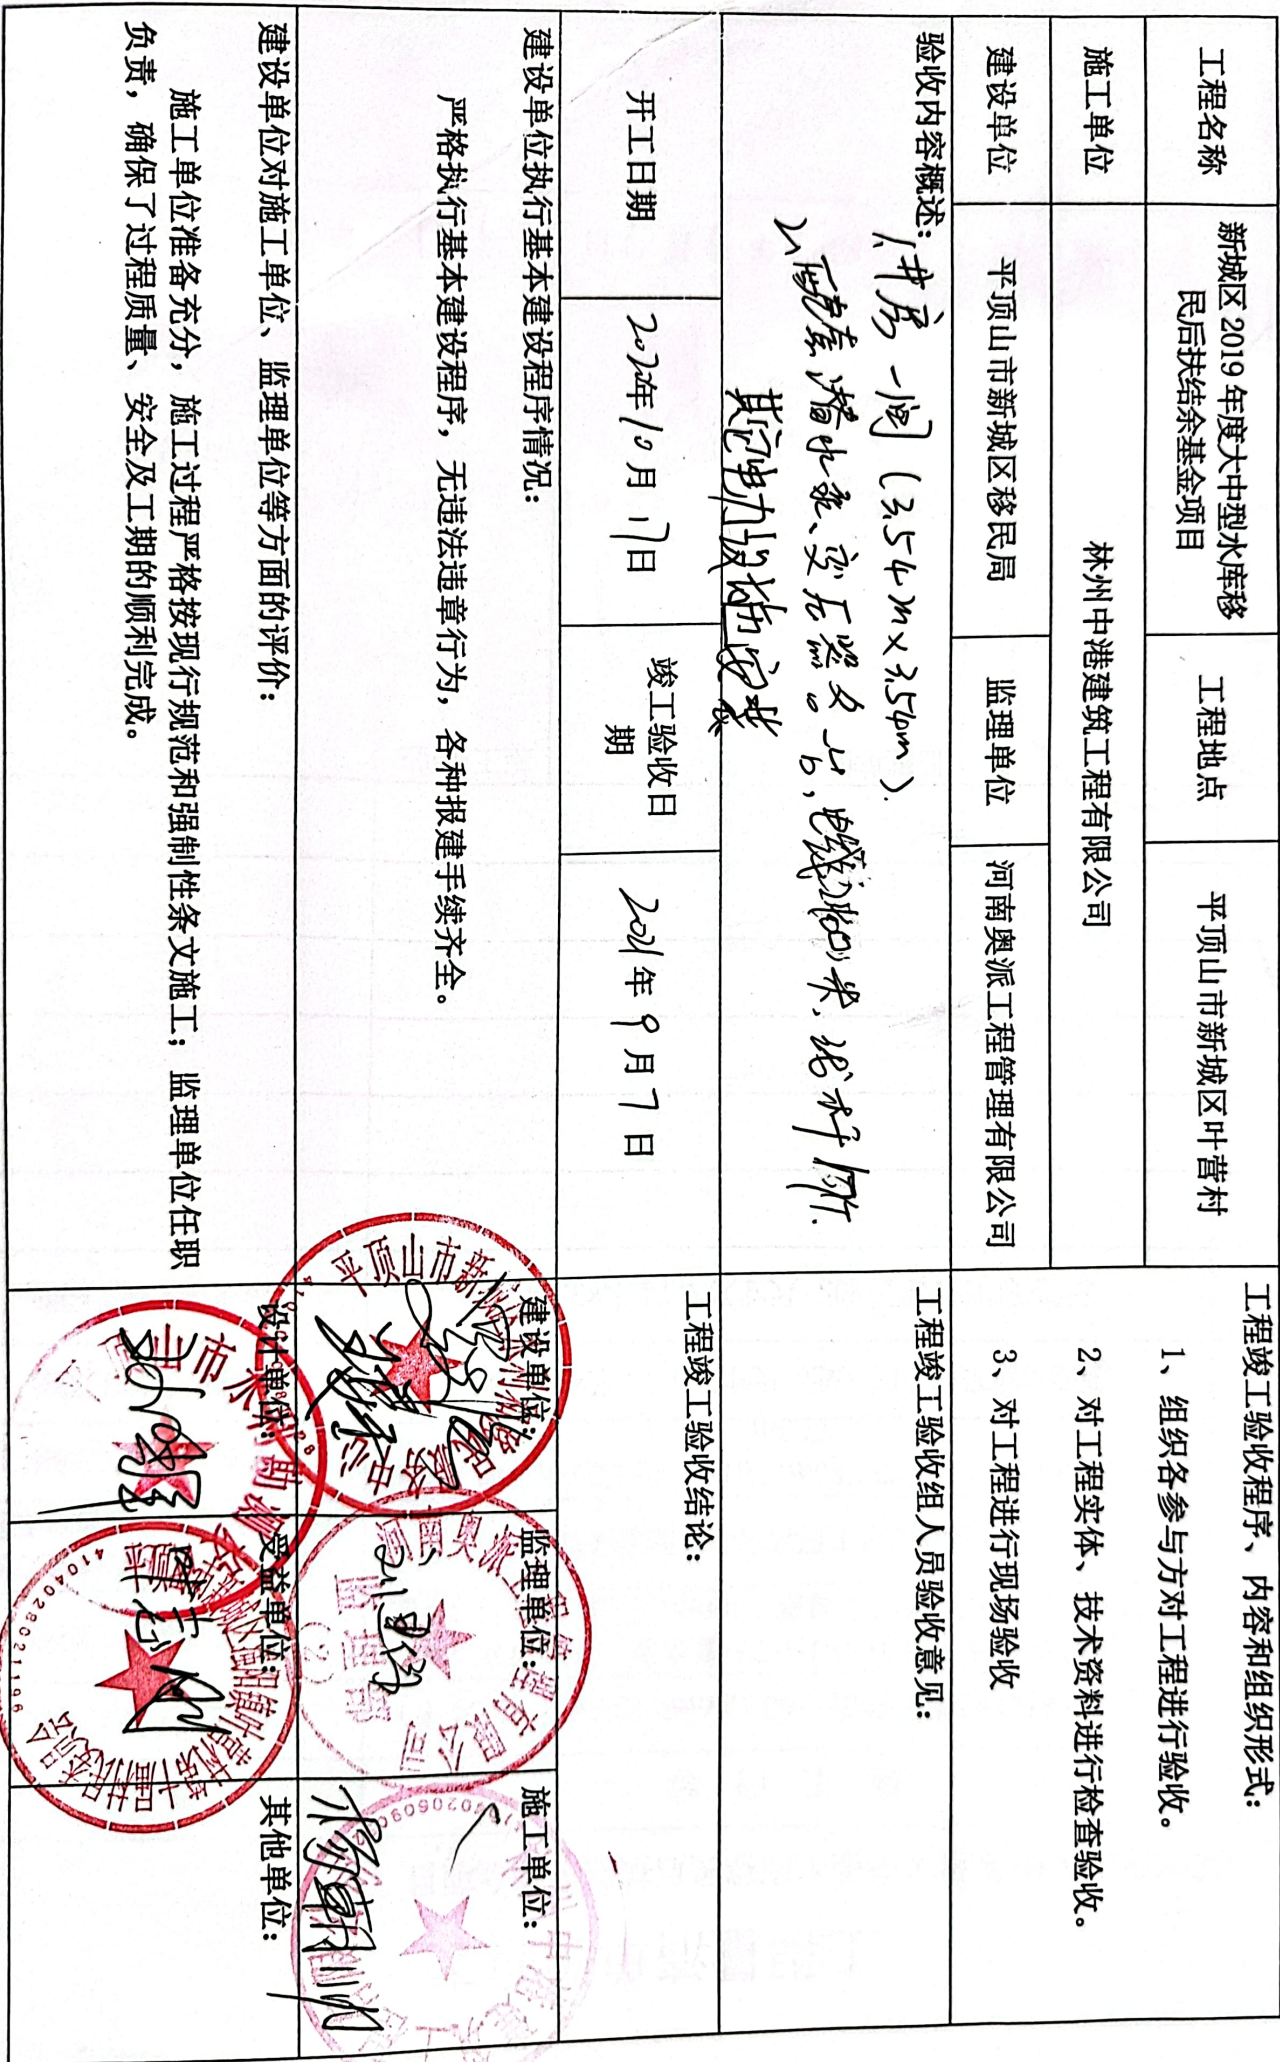 工程名称
新城区 2019 年度大中型水库移
民后扶结余基金项目
工程地点
平顶山市新城区叶营村
施工单位
林州中港建筑工程有限公司
建设单位
平顶山市新城区移民局
监理单位
河南奥派工程管理有限公司
验收内容概述：
1、井房一间（3.54m×3.54m）.
2、配套潜水泵、变压器
其它电力设施安装
开工日期
2020年10月17日
竣工验收日
期
2021年9月7日
建设单位执行基本建设程序情况：
严格执行基本建设程序，无违法违章行为，各种报建手续齐全。
建设单位对施工单位、监理单位等方面的评价：
施工单位准备充分，施工过程严格按现行规范和强制性条文施工；监理单位任职
负责，确保了过程质量、安全及工期的顺利完成。
工程竣工验收程序、内容和组织形式：
1、组织各参与方对工程进行验收。
2、对工程实体、技术资料进行检查验收。
3、对工程进行现场验收
工程竣工验收组人员验收意见：
工程竣工验收结论：
建设单位：
监理单位：
施工单位：
设计单位：
受益单位：
其他单位：
河南奥派工程管理有限公司
监理部
（2）
4104028021166